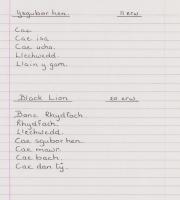 Ysgubor hen. 11 erw.
Cae.
Cae isa.
Cae ucha.
Llechwedd.
Llain y gam.
Black Lion 20 erw.
Banc Rhydfach
Rhydfach.
Llechwedd.
Cae sgubor hen.
Cae mawr.
Cae bach.
Cae dan tŷ.